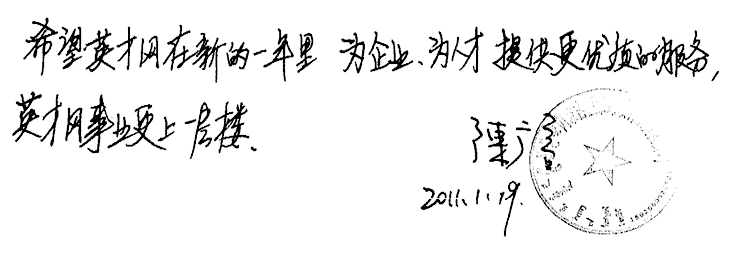 希望英才网在新的一年里 为企业、为人才提供更优质的服务,
英才网事业更上一层楼。
陈
2011.1.19.